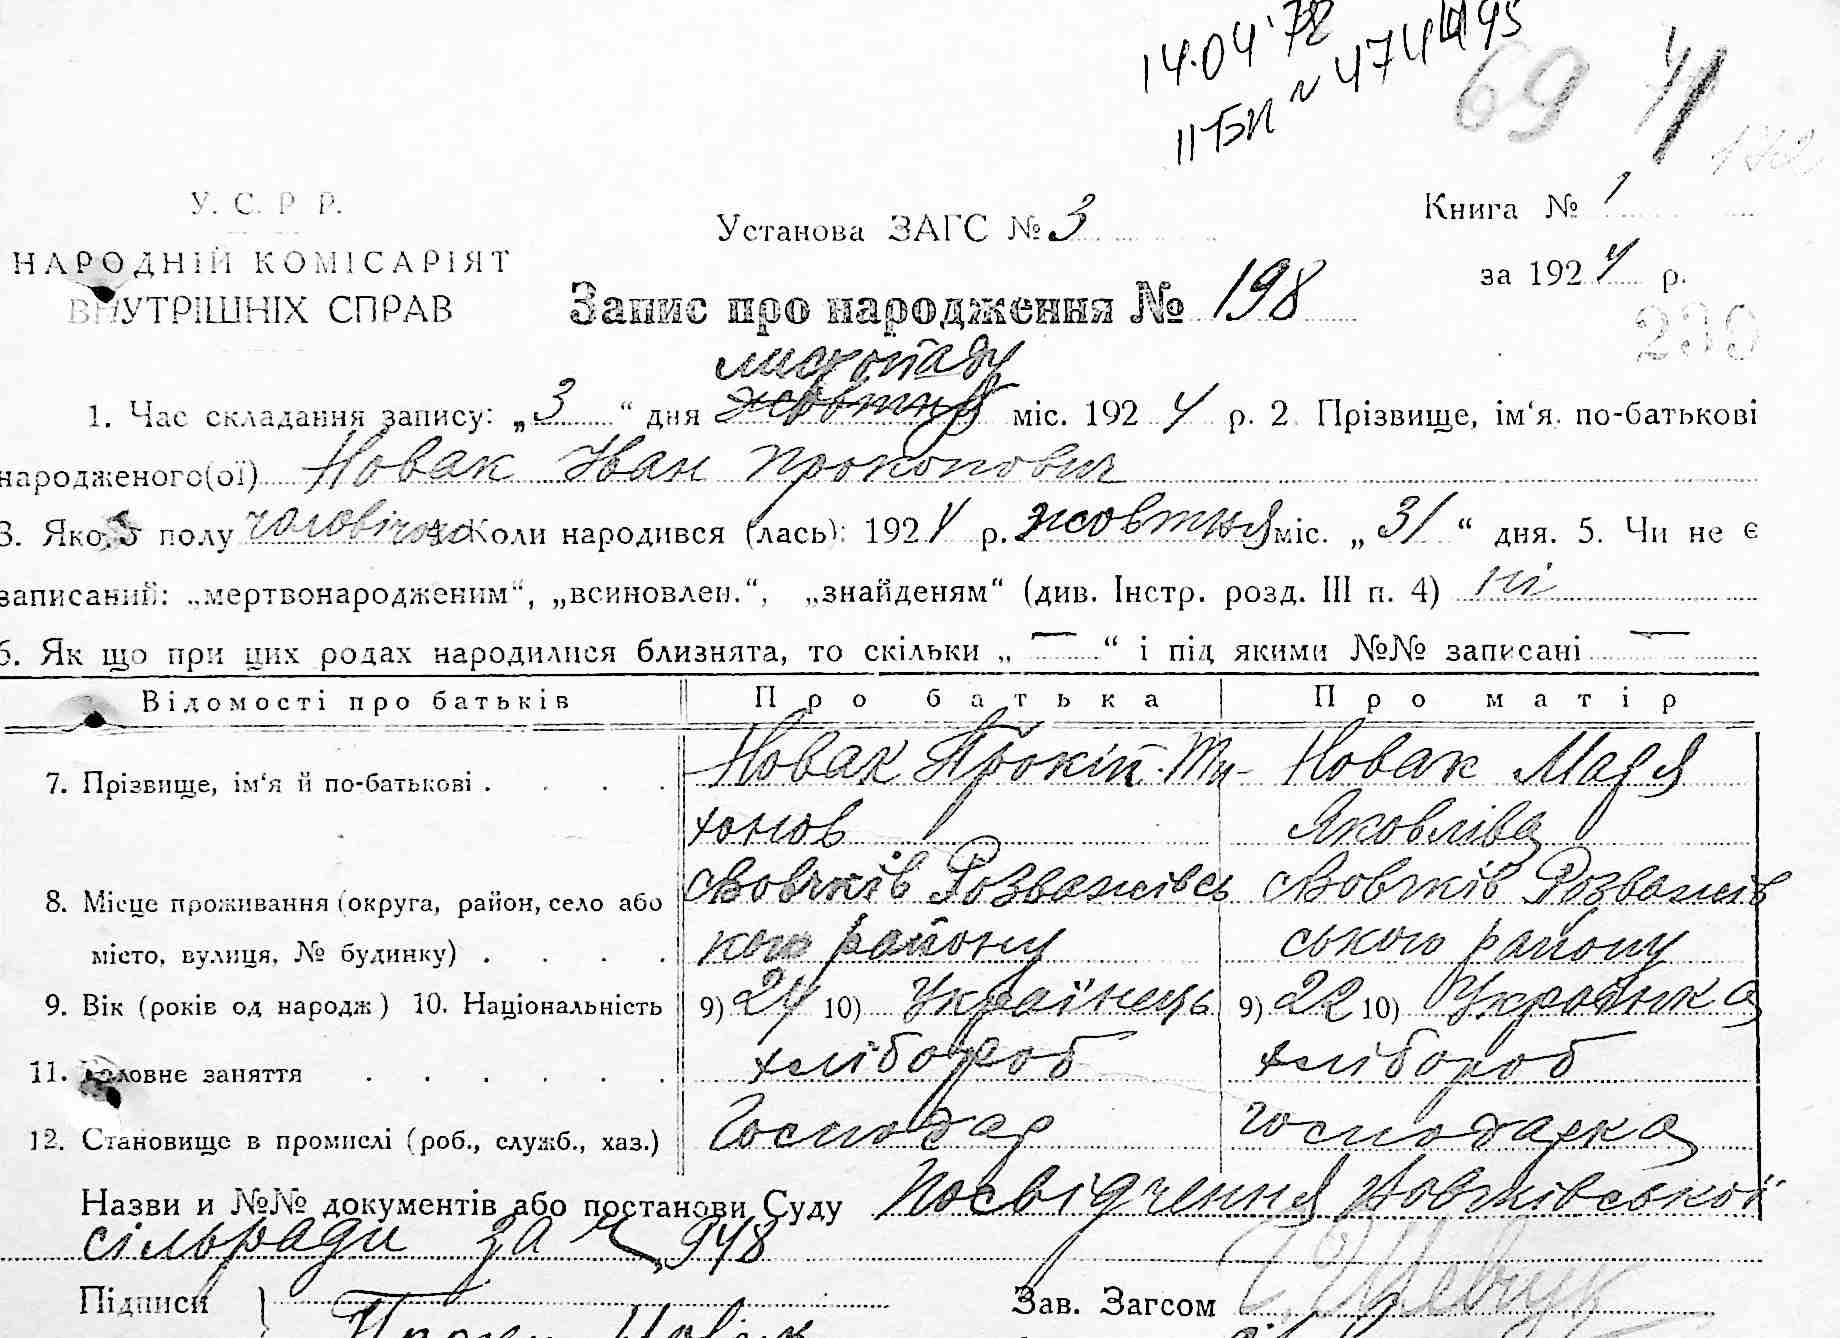 14.04 72
II БП № 474495
69
У. С. Р Р.
НАРОДНІЙ КОМІСАРІЯТ
ВНУТРІШНІХ СПРАВ
Установа ЗАГС № 3
Книга № 1
за 1924 р.
Запис про народження № 198
239
листопаду
1. Час складання запису: „3“ дня жовтня міс. 1924 р. 2. Прізвище, ім‘я. по-батькові
народженого(ої) Новак Іван Прокопович
3. Якого полу чоловічого 4. Коли народився (лась): 1924 р. жовтня міс. „31“ дня. 5. Чи не є
записаний: „мертвонародженим“, „всиновлен.“, „знайденям“ (див. Інстр. розд. III п. 4) ні
6. Як що при цих родах народилися близнята, то скільки „—“ і під якими №№ записані —
Відомості про батьків Про батька Про матір
7. Прізвище, ім‘я й по-батькові . . . . Новак Прокіп Ти- Новак Марія
хонов Яковліва
8. Місце проживання (округа, район, село або Вовчків Розважівсь Вовчків Розважів
місто, вулиця, № будинку) . . . . кого району ського району
9. Вік (років од народж) 10. Національність 9) 24 10) Українець 9) 22 10) Українка
11. Головне заняття . . . . . . хлібороб хлібороб
12. Становище в промислі (роб., служб., хаз.) Господар Господарка
Назви и №№ документів або постанови Суду Посвідчення Вовчківської
сільради за ч 948
Підписи
Зав. Загсом Шевчук